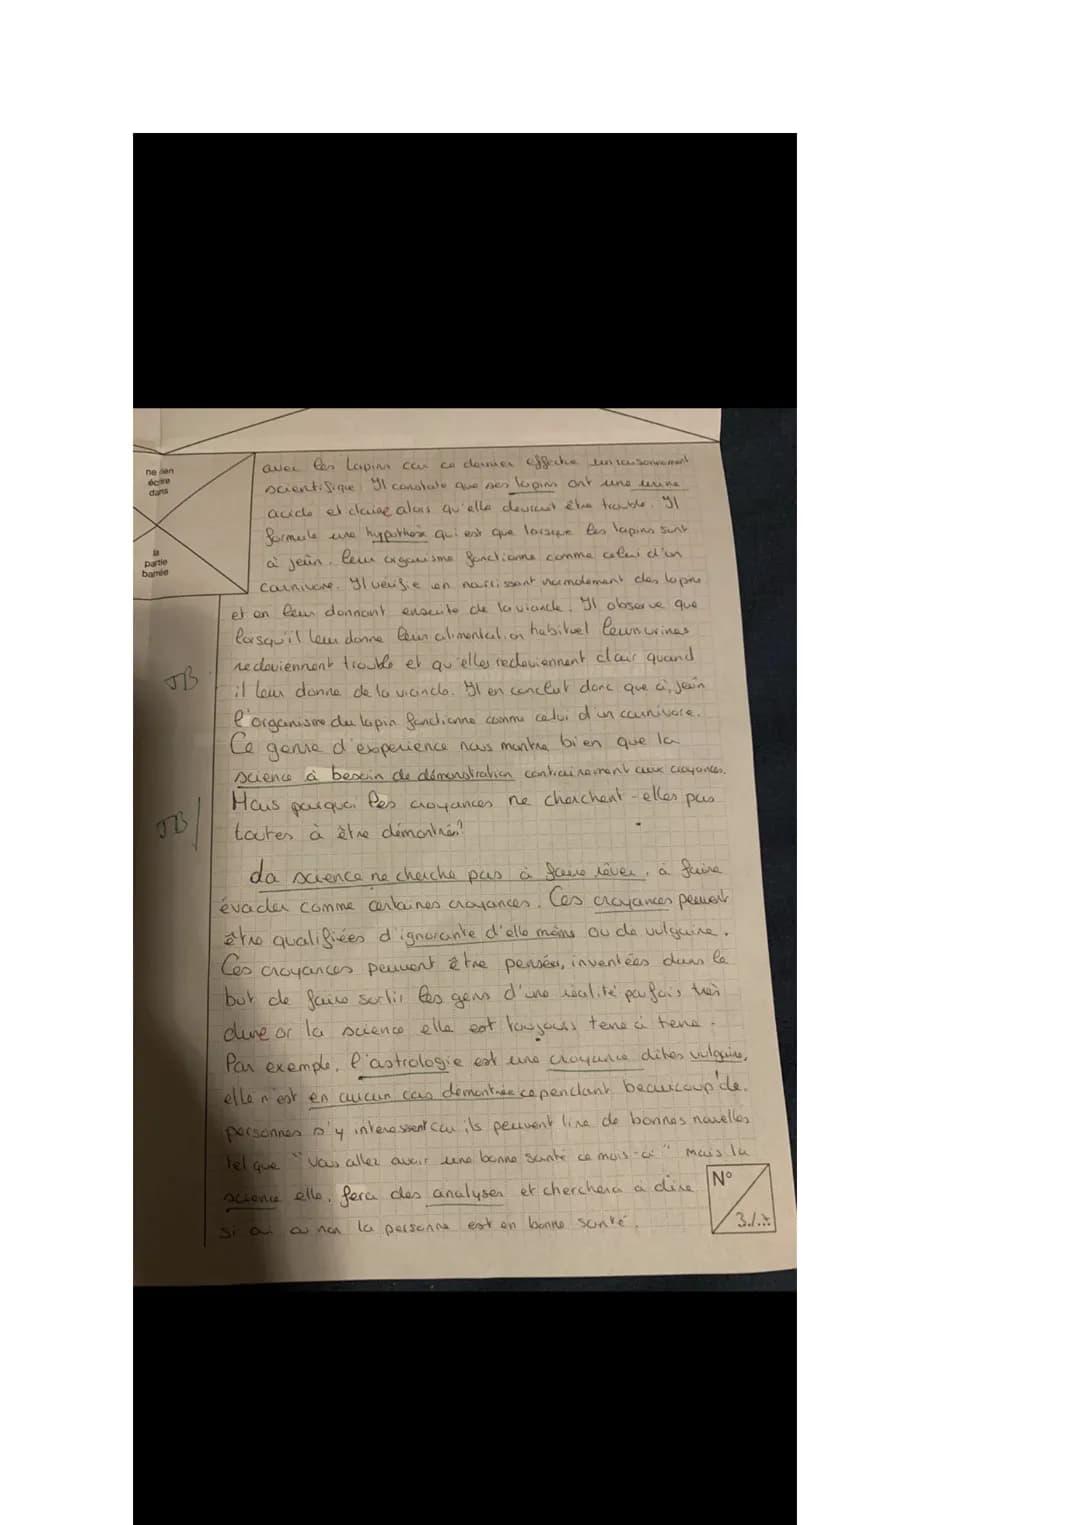 ne rien
écrire
dans
la
partie
barrée
avec les lapins car ce dernier effectue un raisonnement
scientifique. Il constate que ses lapins ont une urine
acide et claire alors qu'elle devrait être trouble. Il
formule une hypothèse qui est que lorsque les lapins sont
à jeûn, leur organisme fonctionne comme celui d'un
carnivore. Il vérifie en nourissant normalement des lapins
et en leur donnant ensuite de la viande. Il observe que
lorsqu'il leur donne leur alimentation habituel leurs urines
redeviennent trouble et qu'elles redeviennent clair quand
JB
il leur donne de la viande. Il en conclut donc que à jeûn
l'organisme du lapin fonctionne comme celui d'un carnivore.
Ce genre d'experience nous montre bien que la
science à besoin de démonstration contrairement aux croyances.
Mais pourquoi les croyances ne cherchent-elles pas
JB
toutes à être démontrés?
La science ne cherche pas à faire rêver, à faire
évader comme certaines croyances. Ces croyances peuvent
être qualifiées d'ignorante d'elle même ou de vulgaire.
Ces croyances peuvent être pensées, inventées dans le
but de faire sortir les gens d'une réalité parfois très
dure or la science elle est toujours terre à terre.
Par exemple, l'astrologie est une croyance dites vulgaire,
elle n'est en aucun cas démontrée cependant beaucoup de
personnes s'y interessent car ils peuvent lire de bonnes nouvelles
tel que "Vous allez avoir une bonne santé ce mois-ci" mais la
science elle, fera des analyses et cherchera à dire
si oui ou non la personne est en bonne santé.
N°
3./.